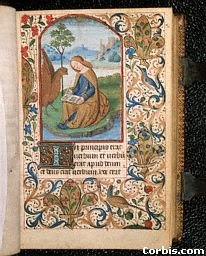 In principio erat
verbum et verbu
erat apud deum
et deus erat verbum. hoc erat
Corbis.com